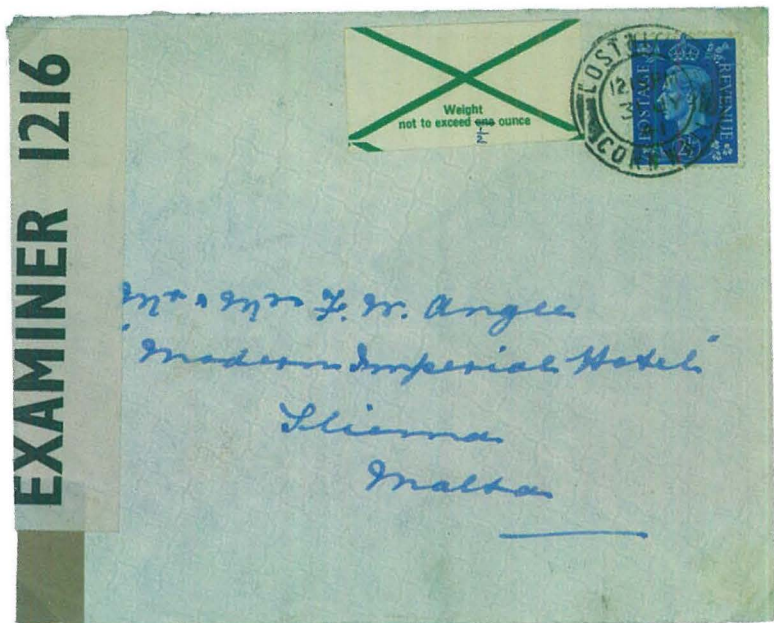 EXAMINER 1216
Weight
not to exceed one ounce
1/2
POSTAGE REVENUE
Mr & Mrs F. W. Angle
"Modern Imperial Hotel"
Sliema
Malta